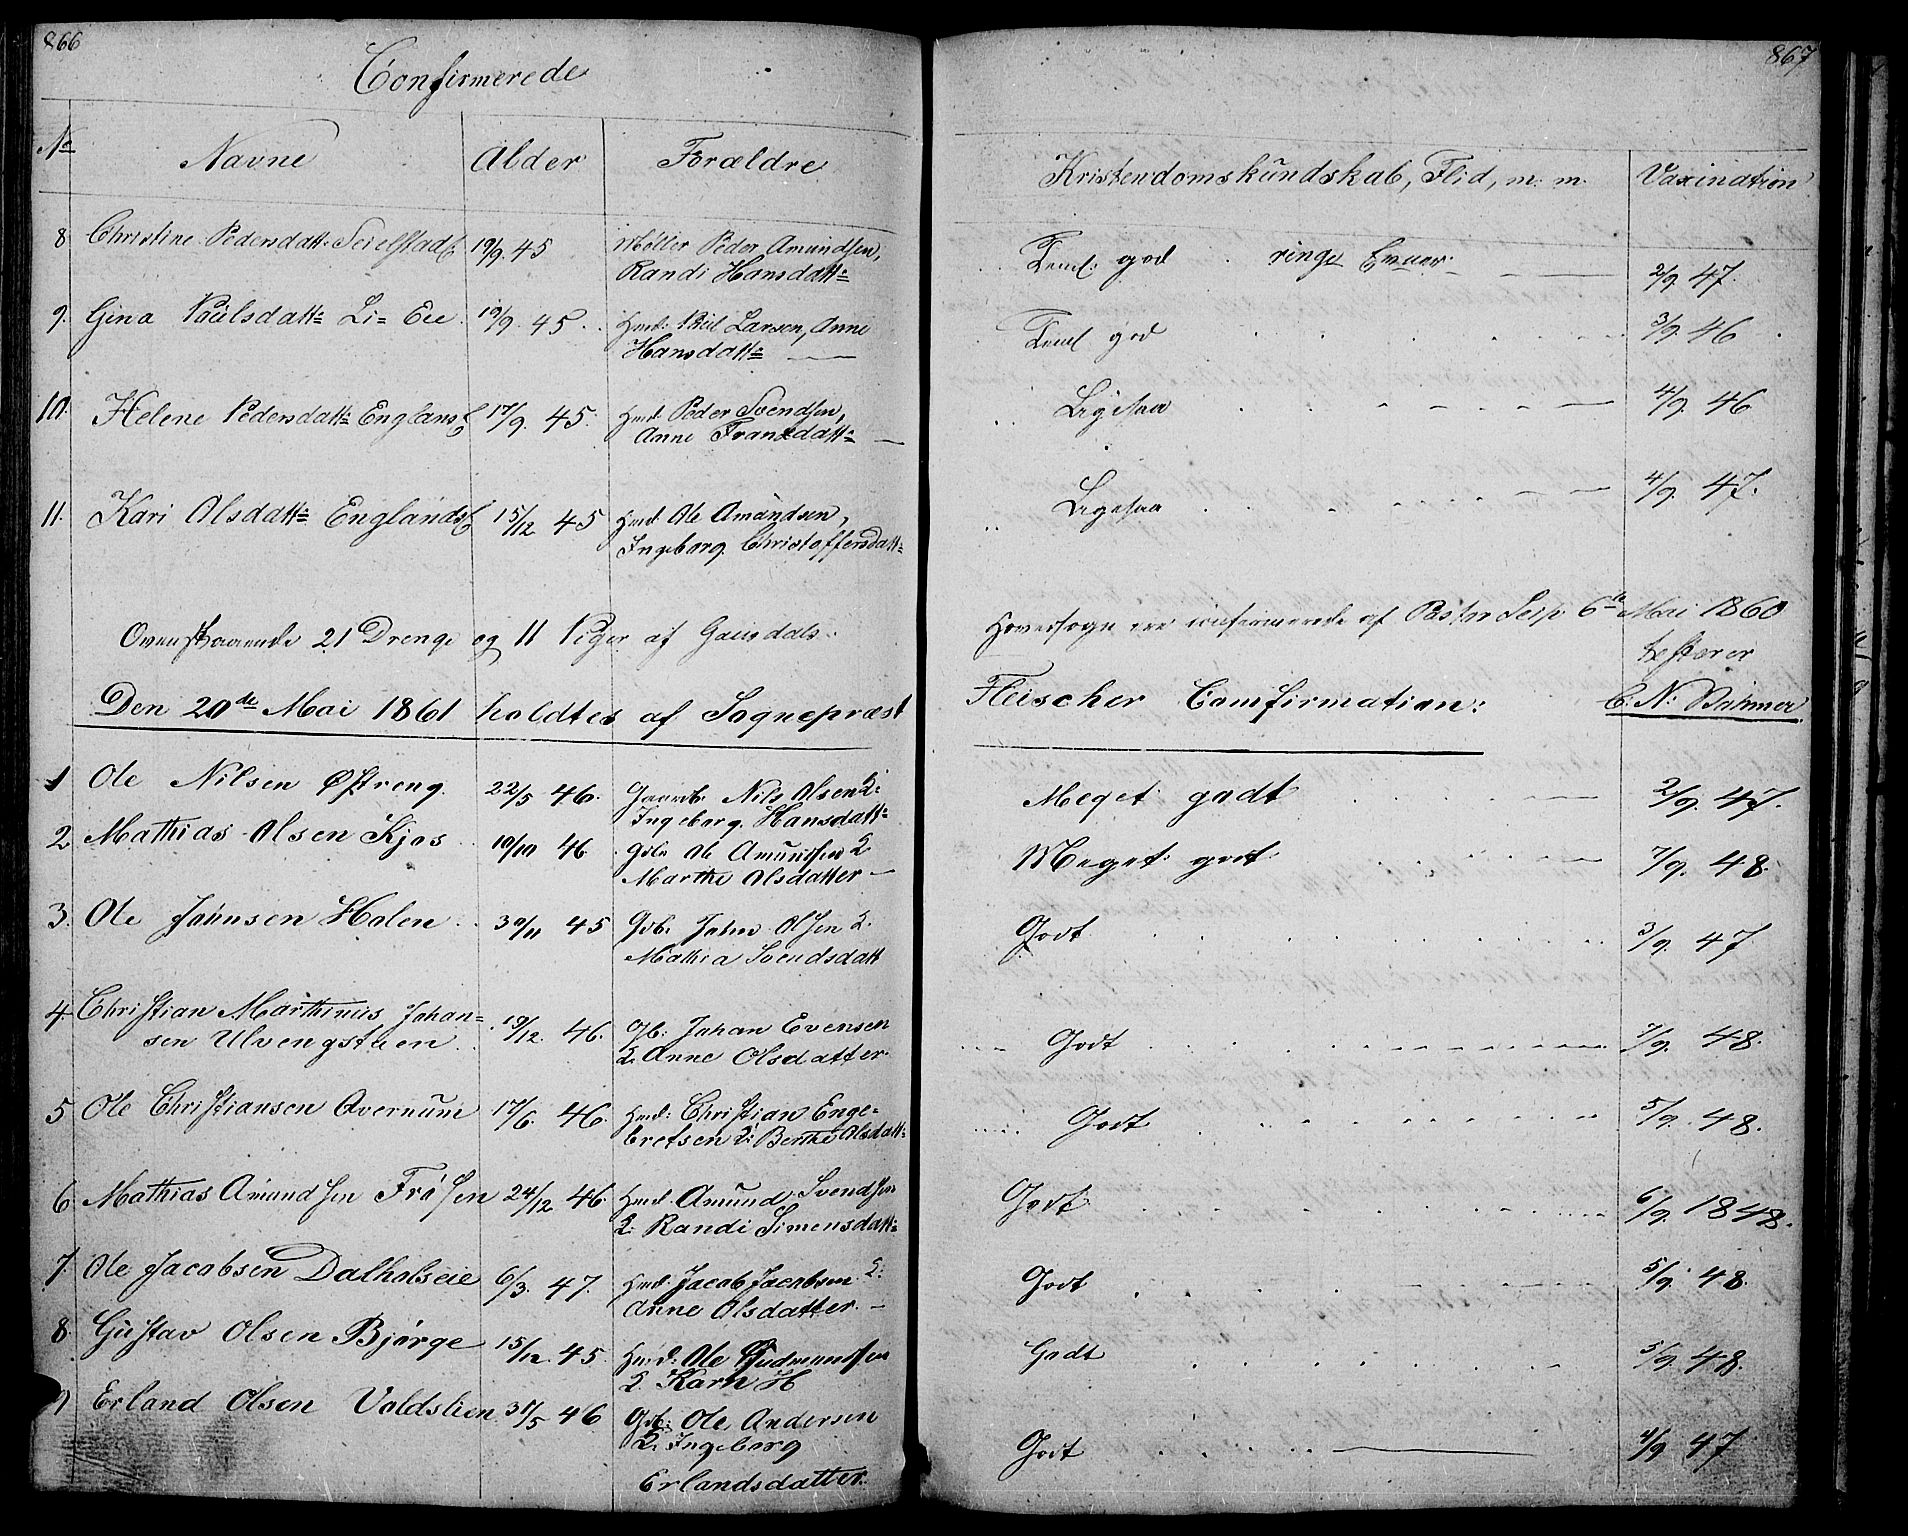 866
Confirmerede
No
Navne
Alder
Forældre
8 Christine Pedersdatt: Seielstad 19/9. 45 Møller Peder Amundsen,
Randi Hansdatt:
9. Gina Poulsdatt: Li= Eie 19/9. 45. Hmd: Poul Larsen, Anne
Hansdatt:
10. Helene Pedersdatt: Englands 17/9. 45. Hmd. Peder Svendsen,
Anne Fransdatt:
11. Kari Olsdatt: Englands 15/12 45 Hmd. Ole Amundsen,
Ingeborg Christoffersdatt:
Ovenstaaende 21 Drenge og 11 Piger af Gausdals
Den 20de Mai 1861 holdtes af Sognepræst
1 Ole Nilsen Østreng. 22/5 46. Gaardb: Nils Olsen &
Ingeborg Hansdatt:
2 Mathias Olsen Kjos 10/10 46 Gdb. Ole Amundsen &
Marthe Olsdatter
3. Ole Johnsen Holen 30/11 45 Gdb. John Olsen &
Mathia Svendsdatt
4. Christian Marthinus Johan=
sen Ulvengstuen 19/12. 46. Gb. Johan Evensen
& Anne Olsdatter.
5 Ole Christiansen Avernum 17/6. 46. Hmd: Christian Enge=
bretsen & Berthe Olsdatt:
6 Mathias Amundsen Frøsen 24/12 46. Hmd. Amund Svendsen
& Randi Simensdatt:
7. Ole Jacobsen Dalholseie 6/3. 47. Hmd. Jacob Jacobsen &
Anne Olsdatter.
8. Gustav Olsen Bjørge 15/12. 45. Hmd. Ole Gudmundsen
& Karn H
9 Erland Olsen Voldslien 31/5 46 Gdb: Ole Andersen
& Ingeborg
Erlandsdatter.
867
Kristendomskundskab, Flid, m. m.
Vaxination
Teml: god ringe Evner. 2/9. 47.
Teml god 3/9. 46
Ligesaa 4/9. 46
Ligesaa 4/9. 47.
Hovedsogn ere confirmerede af Pastor Seip 6te Mai 1860
testerer
Fleischer Comfirmation:
C. N:
Meget godt 2/9. 47.
Meget godt 7/9. 48.
Godt 3/9. 47
Godt 7/9. 48.
Godt 5/9. 48.
Godt 6/9. 1848.
Godt 5/9. 48.
Godt 5/9. 48.
Godt 4/9 47